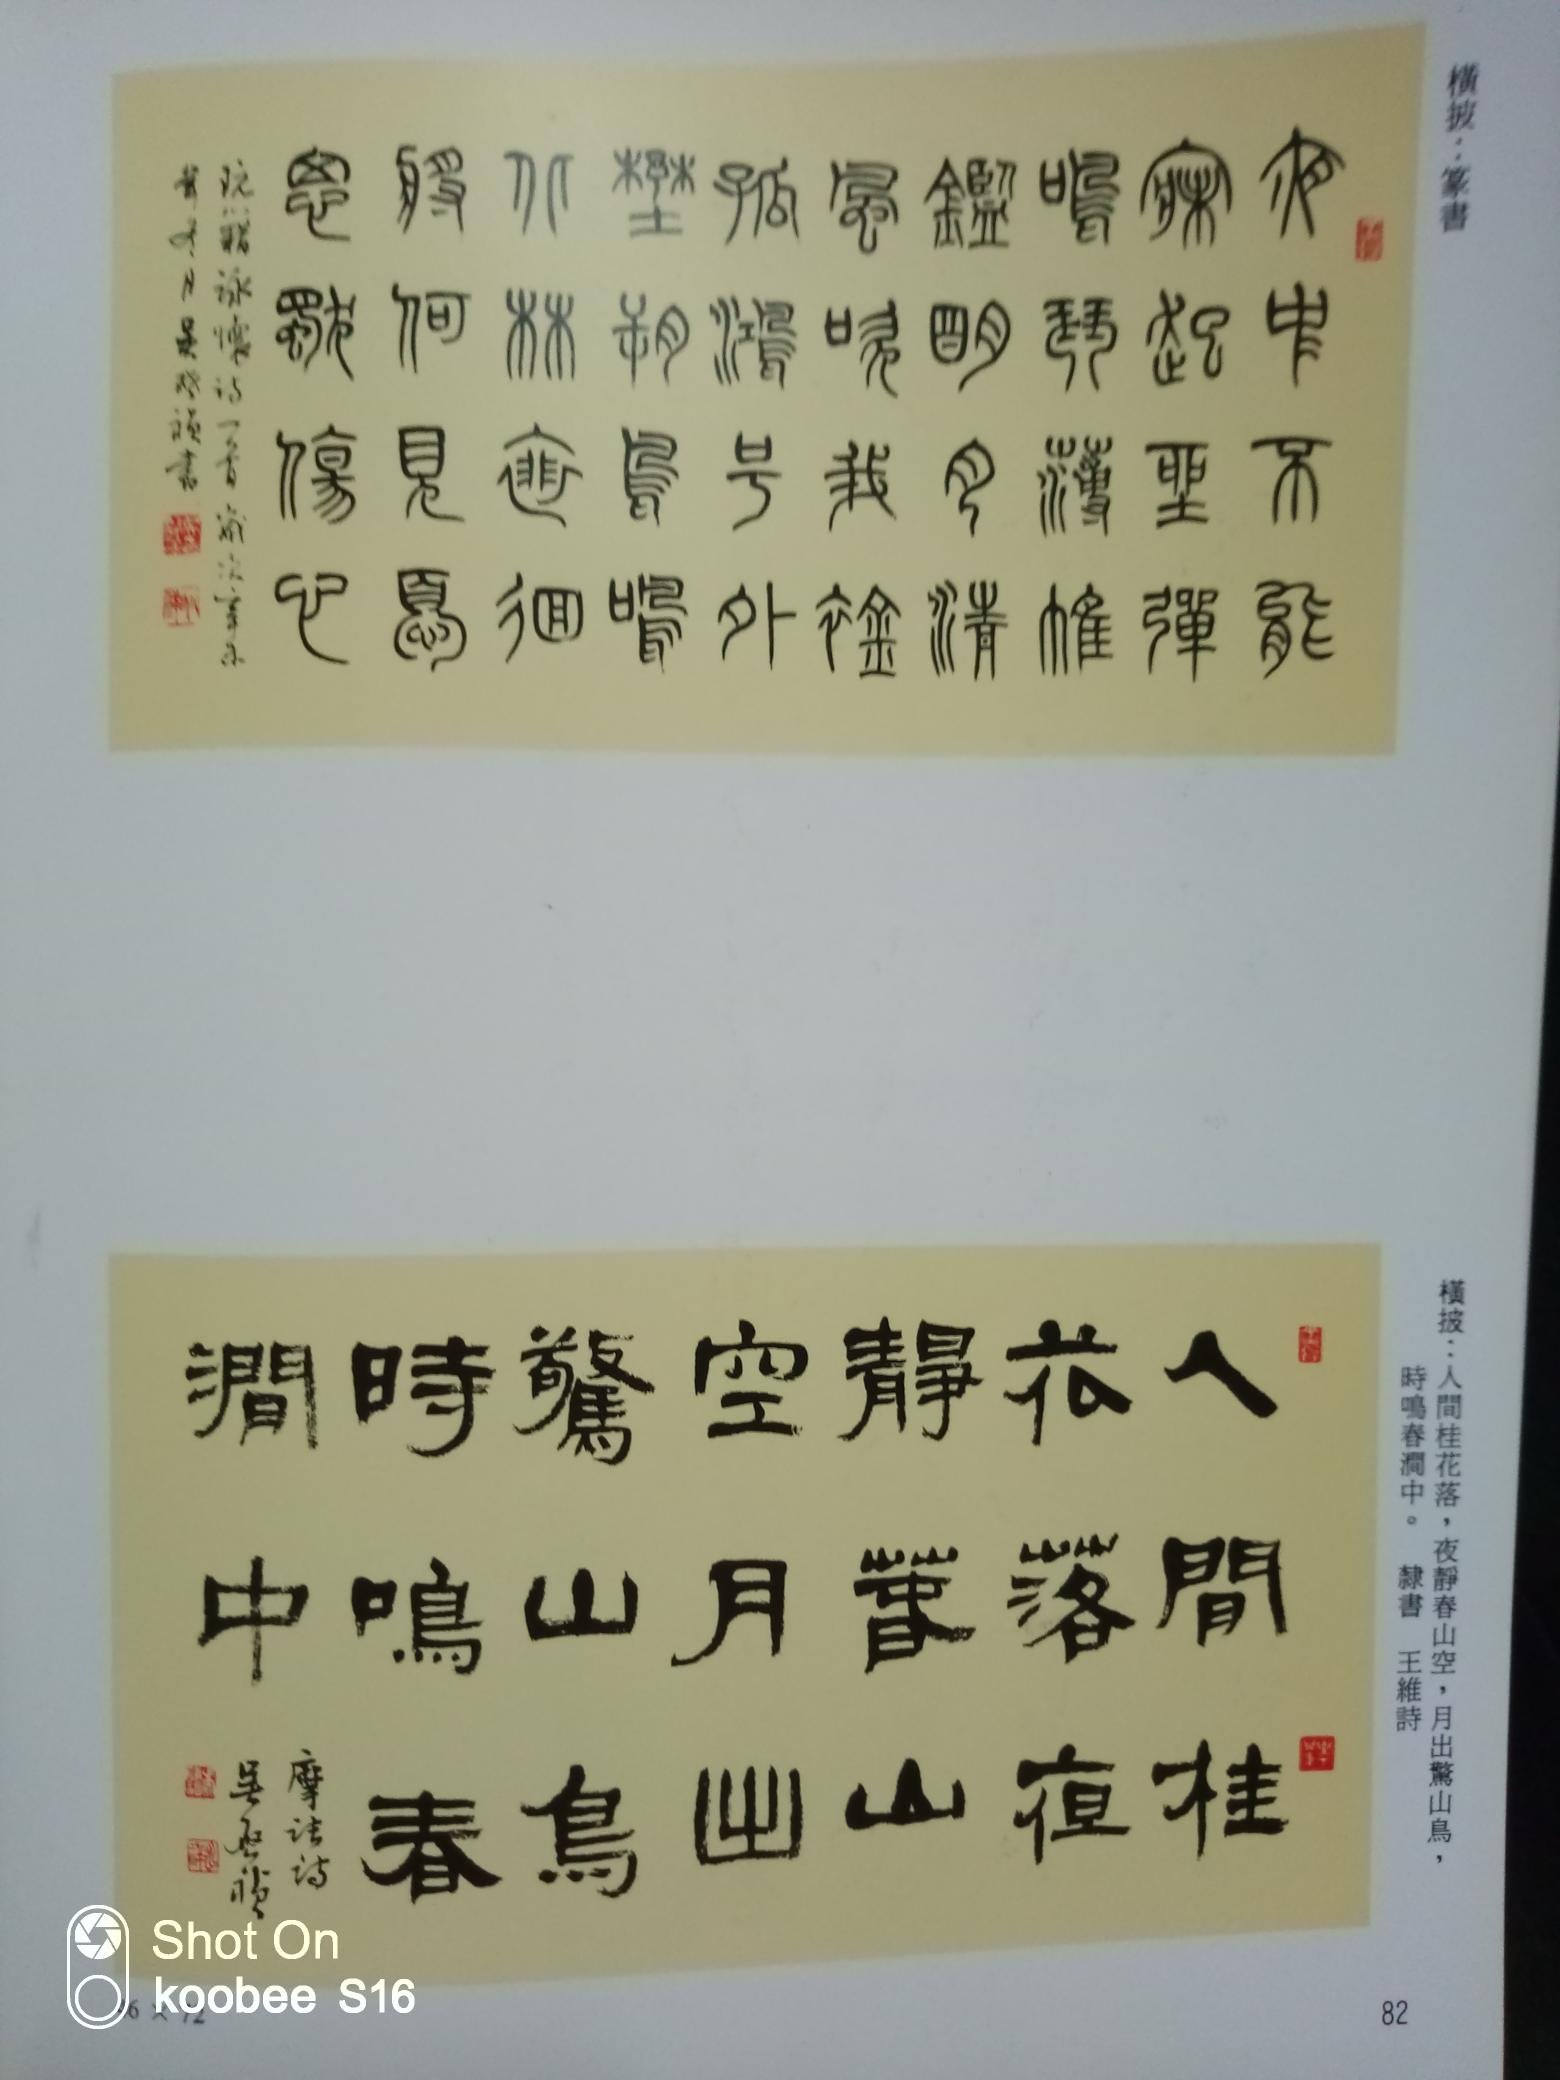 橫披：篆書
夜中不能
寐起坐彈
鳴琴薄帷
鑑明月清
風吹我襟
孤鴻号外
壄朔鳥鳴
北林裴徊
將何見憂
思獨傷心
阮籍詠懷詩一首 歲次辛未
冬月吳啓禎書
橫披：人間桂花落，夜靜春山空，月出驚山鳥，
時鳴春澗中。 隸書 王維詩
人間桂
花落夜
靜春山
空月出
驚山鳥
時鳴春
澗中
摩詰詩
吳啓禎
82
Shot On
koobee S16